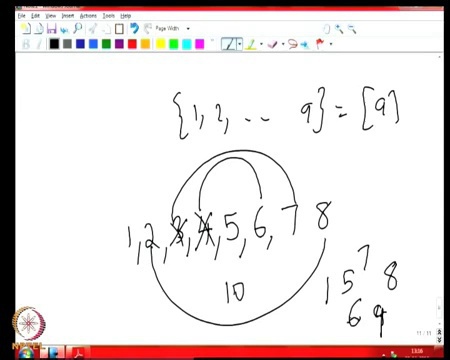 File Edit View Insert Actions Tools Help
Page Width
{1, 2, .. 9} = [9]
1, 2, 3, 4, 5, 6, 7 8
10
7
1 5 8
6 9
11 / 11
13:16